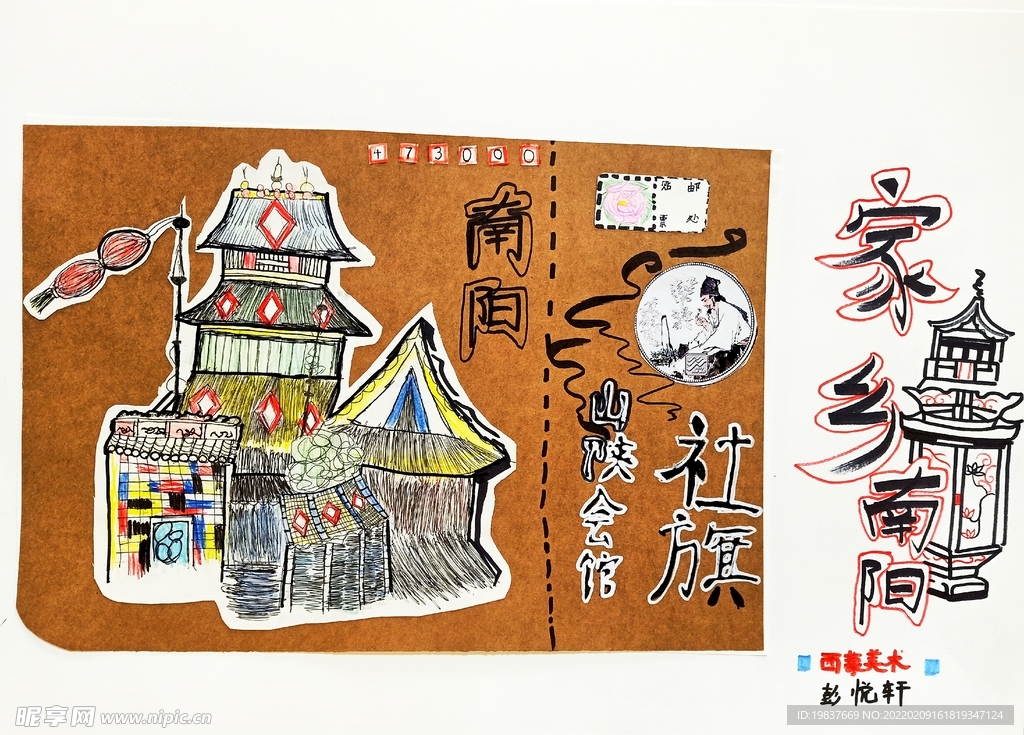 473000
南阳
贴邮
票处
山陕会馆
社旗
家乡
南阳
西藝美术
彭悦轩
昵享网 www.nipic.cn
ID:19837669 NO:20220209161819347124